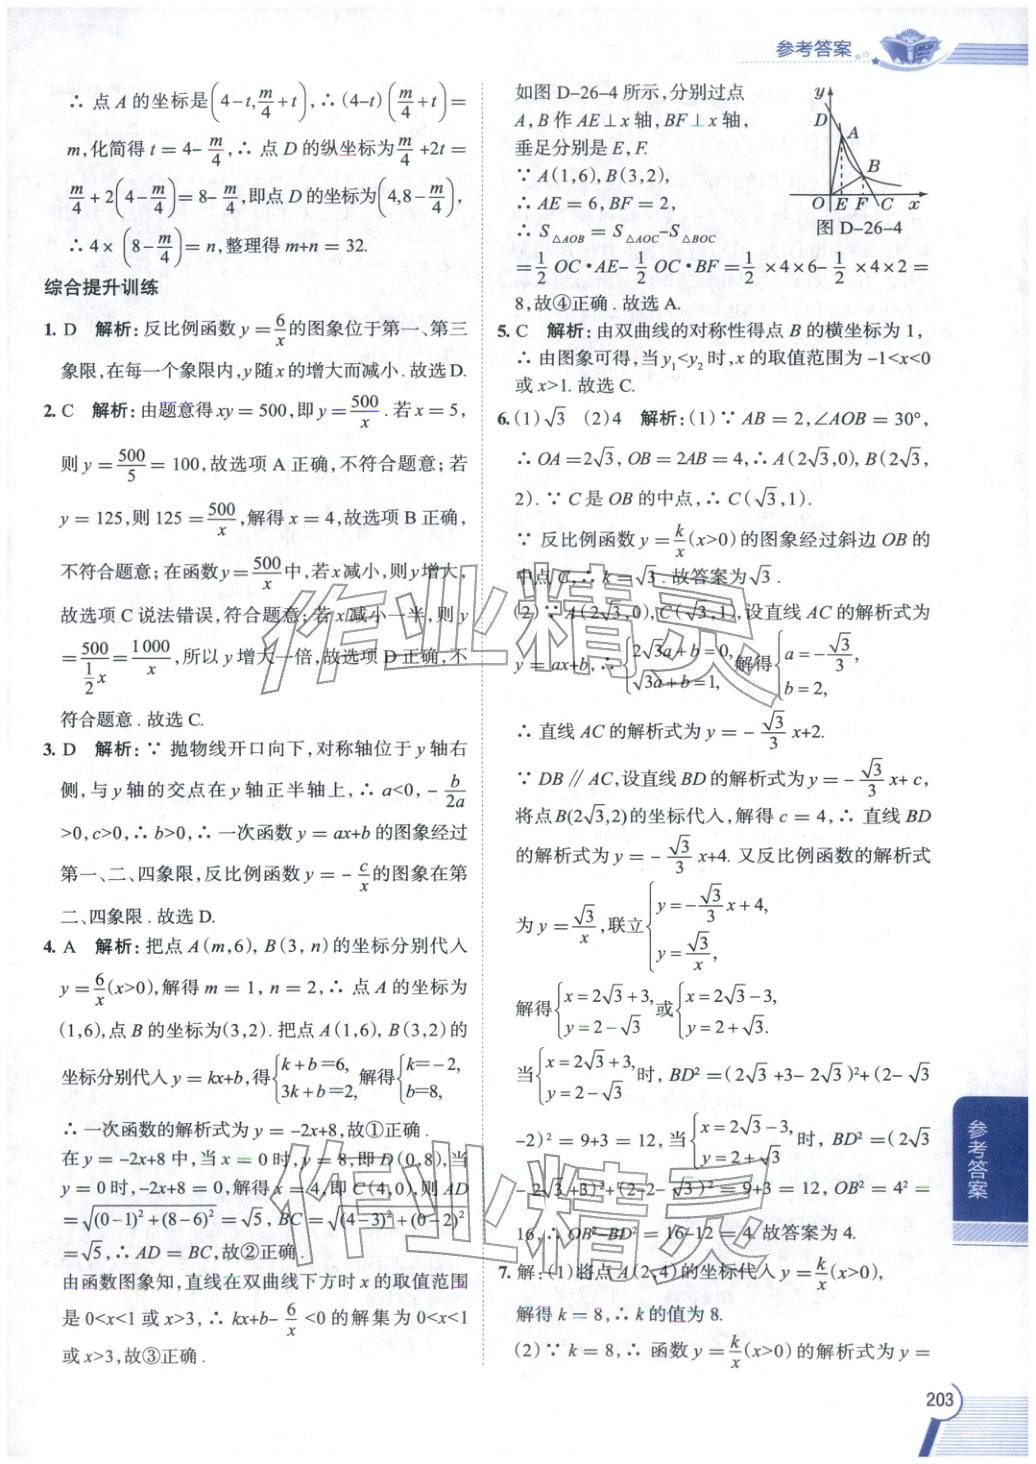 参考答案
∴ 点A的坐标是(4-t, m/4+t), ∴ (4-t)(m/4+t)=
m,化简得t=4-m/4, ∴ 点D的纵坐标为m/4+2t=
m/4+2(4-m/4)=8-m/4,即点D的坐标为(4,8-m/4),
∴ 4×(8-m/4)=n,整理得m+n=32.
综合提升训练
1. D 解析:反比例函数y=6/x的图象位于第一、第三
象限,在每一个象限内,y随x的增大而减小.故选D.
2. C 解析:由题意得xy=500,即y=500/x.若x=5,
则y=500/5=100,故选项A正确,不符合题意;若
y=125,则125=500/x,解得x=4,故选项B正确,
不符合题意;在函数y=500/x中,若x减小,则y增大,
故选项C说法错误,符合题意;若x减小一半,则y
=500/(1/2 x)=1000/x,所以y增大一倍,故选项D正确,不
符合题意.故选C.
3. D 解析:∵ 抛物线开口向下,对称轴位于y轴右
侧,与y轴的交点在y轴正半轴上,∴ a<0,-b/2a
>0,c>0,∴ b>0,∴ 一次函数y=ax+b的图象经过
第一、二、四象限,反比例函数y=-c/x的图象在第
二、四象限.故选D.
4. A 解析:把点A(m,6),B(3,n)的坐标分别代入
y=6/x(x>0),解得m=1,n=2,∴ 点A的坐标为
(1,6),点B的坐标为(3,2).把点A(1,6),B(3,2)的
坐标分别代入y=kx+b,得{k+b=6, 3k+b=2,解得{k=-2, b=8,
∴ 一次函数的解析式为y=-2x+8,故①正确.
在y=-2x+8中,当x=0时,y=8,即D(0,8),当
y=0时,-2x+8=0,解得x=4,即C(4,0),则AD
=√((0-1)²+(8-6)²)=√5,BC=√((4-3)²+(0-2)²)
=√5,∴ AD=BC,故②正确.
由函数图象知,直线在双曲线下方时x的取值范围
是0<x<1或x>3,∴ kx+b-6/x<0的解集为0<x<1
或x>3,故③正确.
如图D-26-4所示,分别过点
A,B作AE⊥x轴,BF⊥x轴,
垂足分别是E,F.
∵ A(1,6),B(3,2),
∴ AE=6,BF=2,
∴ S△AOB=S△AOC-S△BOC
y
D
A
B
O E F C x
图D-26-4
=1/2 OC·AE-1/2 OC·BF=1/2×4×6-1/2×4×2=
8,故④正确.故选A.
5. C 解析:由双曲线的对称性得点B的横坐标为1,
∴ 由图象可得,当y₁<y₂时,x的取值范围为-1<x<0
或x>1.故选C.
6. (1)√3 (2)4 解析:(1)∵ AB=2,∠AOB=30°,
∴ OA=2√3,OB=2AB=4,∴ A(2√3,0),B(2√3,
2).∵ C是OB的中点,∴ C(√3,1).
∵ 反比例函数y=k/x(x>0)的图象经过斜边OB的
中点C,∴ k=√3.故答案为√3.
(2)∵ A(2√3,0),C(√3,1),设直线AC的解析式为
y=ax+b,∴ {2√3a+b=0, √3a+b=1,解得{a=-√3/3, b=2,
∴ 直线AC的解析式为y=-√3/3 x+2.
∵ DB∥AC,设直线BD的解析式为y=-√3/3 x+c,
将点B(2√3,2)的坐标代入,解得c=4,∴ 直线BD
的解析式为y=-√3/3 x+4.又反比例函数的解析式
为y=√3/x,联立{y=-√3/3 x+4, y=√3/x,
解得{x=2√3+3, y=2-√3或{x=2√3-3, y=2+√3.
当{x=2√3+3, y=2-√3时,BD²=(2√3+3-2√3)²+(2-√3
-2)²=9+3=12,当{x=2√3-3, y=2+√3时,BD²=(2√3
-2√3+3)²+(2-2-√3)²=9+3=12,OB²=4²=
16,∴ OB²-BD²=16-12=4.故答案为4.
7. 解:(1)将点A(2,4)的坐标代入y=k/x(x>0),
解得k=8,∴ k的值为8.
(2)∵ k=8,∴ 函数y=k/x(x>0)的解析式为y=
参考答案
203
作业精灵
作业精灵